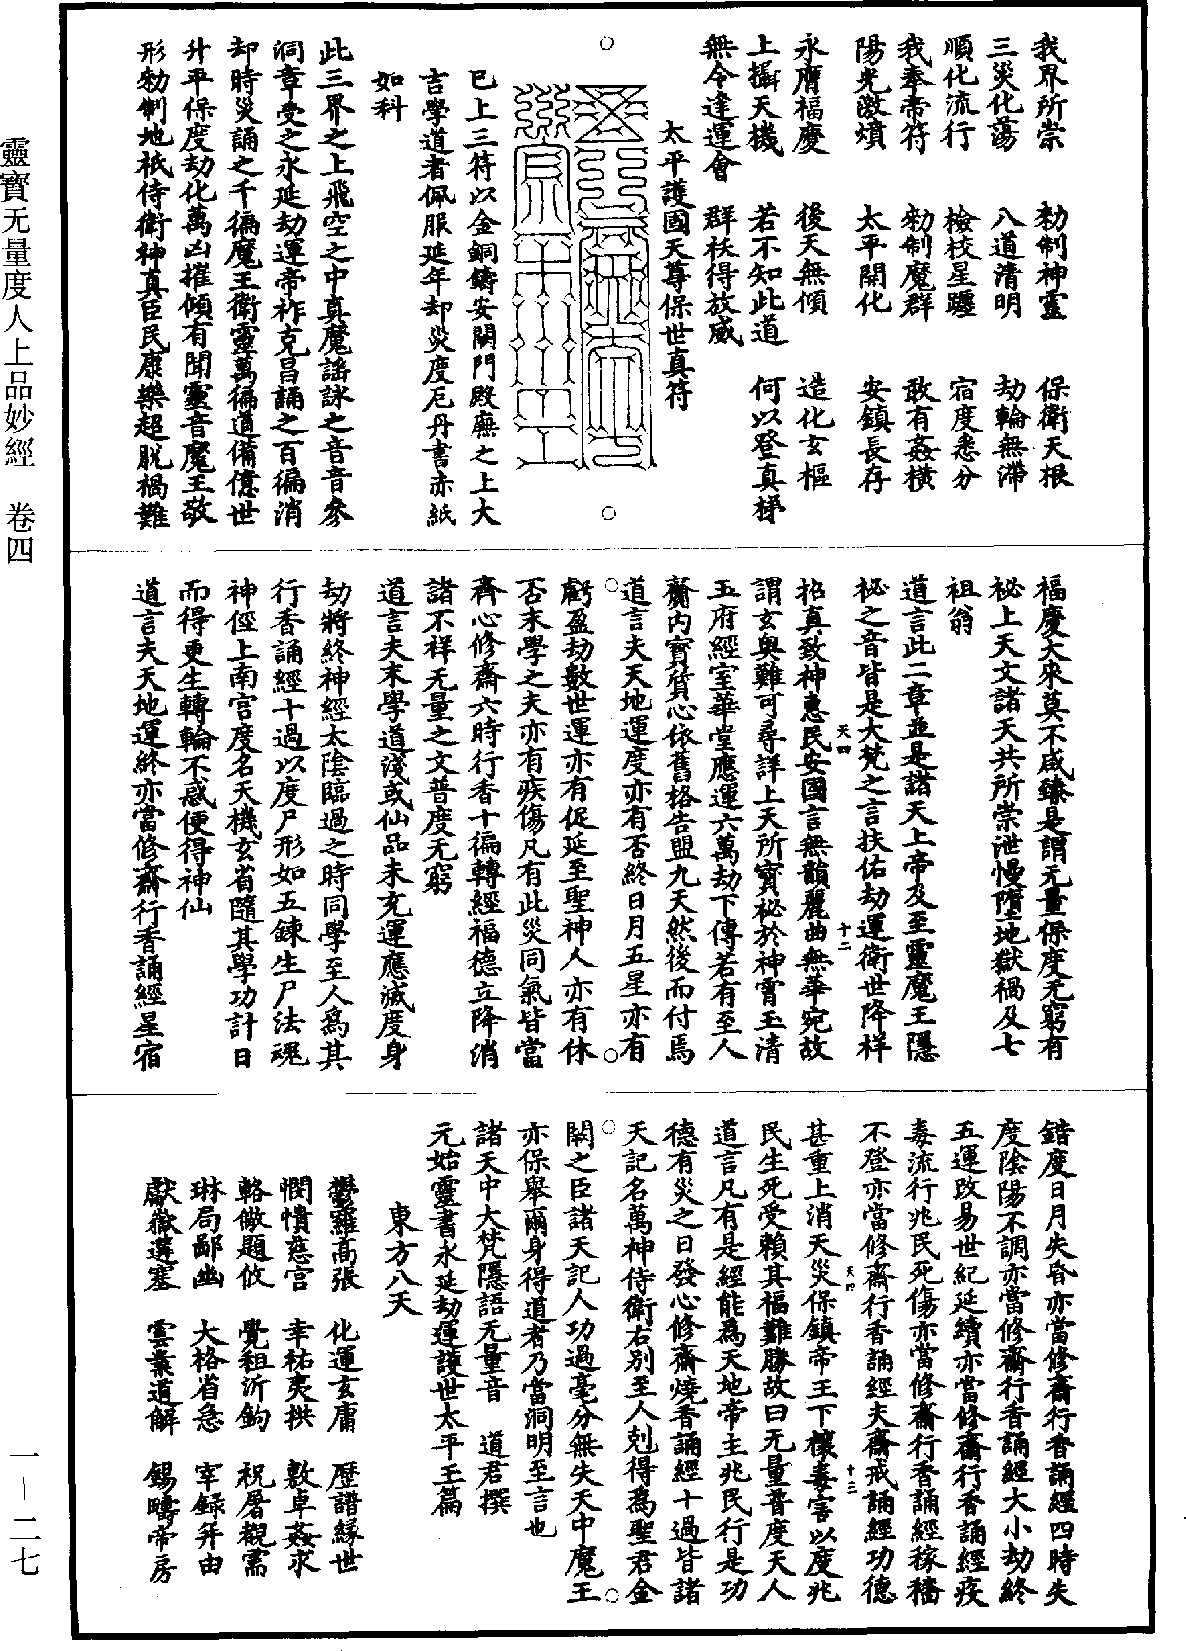 我界所崇　勑制神靈　保衛天根
三災化蕩　八道清明　劫輪無滯
順化流行　檢校星躔　宿度悉分
我奉帝符　勑制魔群　敢有姦橫
陽光激煩　太平開化　安鎮長存
永膺福慶　後天無傾　造化玄樞
上攝天機　若不知此道　何以登真梯
無令違運會　群袄得放威
太平護國天尊保世真符
已上三符以金銅鑄安闕門殿廡之上大
言學道者佩服延年却災度厄丹書亦紙
如科
此三界之上飛空之中真魔謡詠之音音參
洞章受之永延劫運帝祚克昌誦之百徧消
却時災誦之千徧魔王衛靈萬徧道備億世
升平保度劫化萬凶摧傾有聞靈音魔王敬
形勑制地祇侍衛神真臣民康樂超脫禍難
福慶大來莫不咸臻是謂无量保度无窮有
祕上天文諸天共所崇泄慢墮地獄禍及七
祖翁
道言此二章並是諸天上帝及至靈魔王隱
祕之音皆是大梵之言扶佑劫運衛世降祥
天四　十二
招真致神惠民安國言無韻麗曲無華宛故
謂玄奧難可尋詳上天所寶祕於神霄玉清
五府經室華堂應運六萬劫下傳若有至人
齎内寶質心依舊格告盟九天然後而付焉
道言夫天地運度亦有否終日月五星亦有
虧盈劫數世運亦有促延至聖神人亦有休
否末學之夫亦有疾傷凡有此災同氣皆當
齊心修齋六時行香十徧轉經福德立降消
諸不祥无量之文普度无窮
道言夫末學道淺或仙品未充運應滅度身
劫將終神經太陰臨過之時同學至人爲其
行香誦經十過以度尸形如五鍊生尸法魂
神徑上南宫度名天機玄省隨其學功計日
而得更生轉輪不惑便得神仙
道言夫天地運終亦當修齋行香誦經星宿
錯度日月失昏亦當修齋行香誦經四時失
度陰陽不調亦當修齋行香誦經大小劫終
五運改易世紀延續亦當修齋行香誦經疫
毒流行兆民死傷亦當修齋行香誦經稼穡
不登亦當修齋行香誦經夫齋戒誦經功德
天四　十三
甚重上消天災保鎮帝王下禳毒害以度兆
民生死受賴其福難勝故曰无量普度天人
道言凡有是經能爲天地帝主兆民行是功
德有災之日發心修齋燒香誦經十過皆諸
天記名萬神侍衛右别至人剋得爲聖君金
闕之臣諸天記人功過毫分無失天中魔王
亦保舉爾身得道者乃當洞明至言也
諸天中大梵隱語无量音　道君撰
元始靈書永延劫運護世太平王篇
東方八天
鬱羅高張　化運玄庸　歷譜緣世
憫憒慈宫　幸祐夷拱　敷卓姦求
輅倣題攸　覺租沂鈎　祝屠覩需
琳局鄙幽　大格省急　宰録升由
獻嶽遘塞　雲業道解　錫疇帝房
靈寶无量度人上品妙經　卷四
一—二七